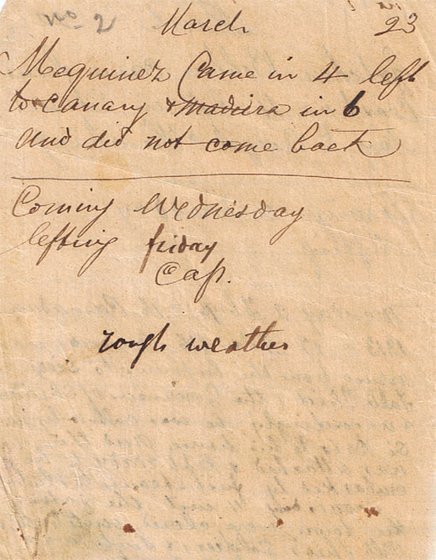 no 2 March 23
Mequinez Came in 4 left
to Canary & Madiera in 6
and did not come back
Coming Wednesday
lefting friday
Cap.
rough weather